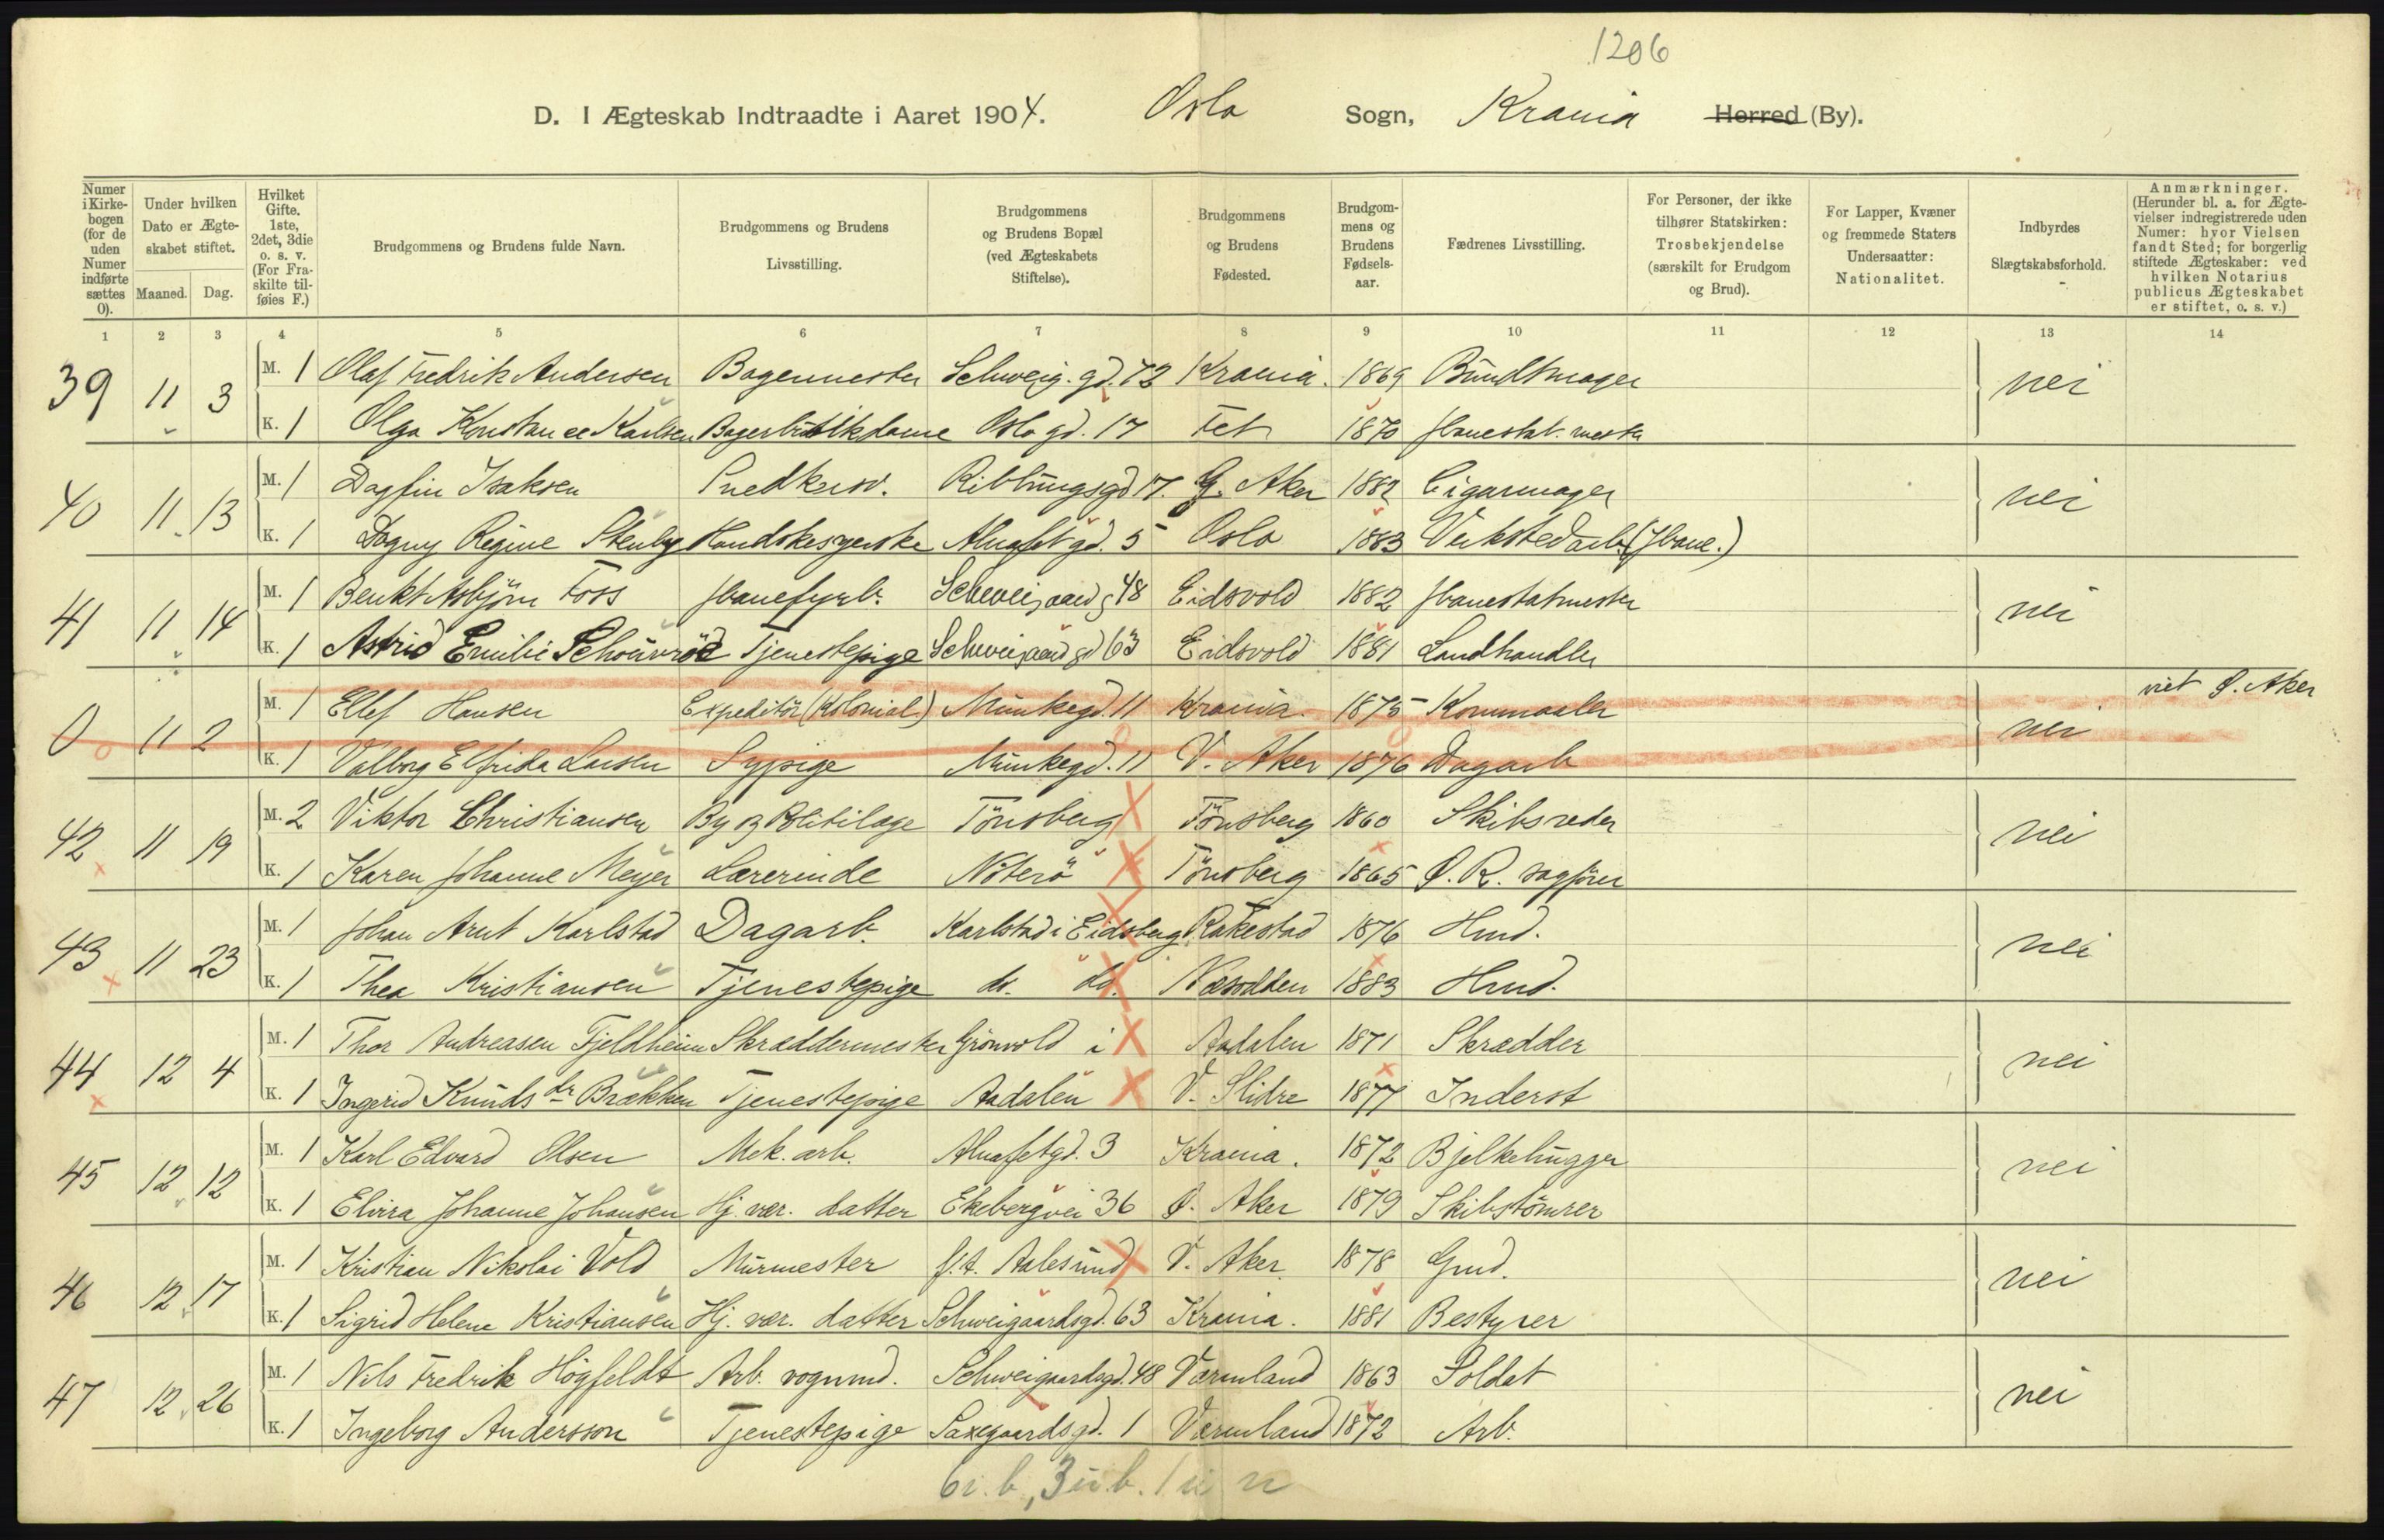 1206
D. I Ægteskab Indtraadte i Aaret 1904. Oslo Sogn, Krania Herred (By).
Numer i Kirkebogen (for de uden Numer indførte sættes 0).
Under hvilken Dato er Ægteskabet stiftet. Maaned. Dag.
Hvilket Gifte. 1ste, 2det, 3die o. s. v. (For Fraskilte tilføies F.)
Brudgommens og Brudens fulde Navn.
Brudgommens og Brudens Livsstilling.
Brudgommens og Brudens Bopæl (ved Ægteskabets Stiftelse).
Brudgommens og Brudens Fødested.
Brudgommens og Brudens Fødselsaar.
Fædrenes Livsstilling.
For Personer, der ikke tilhører Statskirken: Trosbekjendelse (særskilt for Brudgom og Brud).
For Lapper, Kvæner og fremmede Staters Undersaatter: Nationalitet.
Indbyrdes Slægtskabsforhold.
Anmærkninger. (Herunder bl. a. for Ægtevielser indregistrerede uden Numer: hvor Vielsen fandt Sted; for borgerlig stiftede Ægteskaber: ved hvilken Notarius publicus Ægteskabet er stiftet, o. s. v.)
1 2 3 4 5 6 7 8 9 10 11 12 13 14
39 11 3 M. 1 Olaf Fredrik Andersen Bagermester Schweig. gd. 72 Krania. 1869 Bundtmager nei
K. 1 Olga Konstance Karlsen Bagerbutikdame Oslo gd. 17 Fet 1870 Jbanestat. mester
40 11 13 M. 1 Dagfin Isaksen Snedkersv. Ribbungsgd 17. G. Aker 1882 Cigarmager nei
K. 1 Dagny Regine Stenby Handskesyerske Alnafetgd. 5 Oslo 1883 Verkstedarb. (Jbane.)
41 11 14 M. 1 Benkt Asbjörn Foss Jbanefyrb. Schweigaard g 48 Eidsvold 1882 Jbanestatmester nei
K. 1 Astrid Emilie Schouvröe Tjenestepige Schweigaard gd 63 Eidsvold 1881 Landhandler
0 11 2 M. 1 Ellef Hansen Expeditör (Kolonial.) Munkegd. 11 Krania. 1875 Kornmaaler nei viet Ø. Aker
K. 1 Valborg Elfrida Larsen Sypige Munkegd. 11 V. Aker 1876 Dagarb
42 11 19 M. 2 Viktor Christiansen By og Politilæge Tönsberg Tönsberg 1860 Skibsreder nei
K. 1 Karen Johanne Meyer Lærerinde Nöterö Tönsberg 1865 O. R. sagförer
43 11 23 M. 1 Johan Arnt Karlstad Dagarb. Karlstad i Eidsberg Rakkestad 1876 Hmd. nei
K. 1 Thea Kristiansen Tjenestepige do. do. Næsodden 1883 Hmd.
44 12 4 M. 1 Thor Andreasen Fjeldheim Skræddermester Grönvold i Aadalen 1871 Skrædder nei
K. 1 Ingerid Knuds dr Brækken Tjenestepige Aadalen V. Slidre 1877 Inderst
45 12 12 M. 1 Karl Edvard Olsen Mek. arb. Alnafetgd. 3 Krania. 1872 Bjelkehugger nei
K. 1 Elvira Johanne Johansen Hj. vær. datter Ekebergvei 36 Ø. Aker 1879 Skibstömrer
46 12 17 M. 1 Kristian Nikolai Vold Murmester f. t. Aalesund V. Aker 1878 Gmd. nei
K. 1 Sigrid Helene Kristiansen Hj. vær. datter Schweigaardsgd. 63 Krania. 1881 Bestyrer
47 12 26 M. 1 Nils Fredrik Högfeldt Arb. vognmd. Schweigaardsgd. 48 Værmland 1863 Soldat nei
K. 1 Ingeborg Andersson Tjenestepige Saxegaardsgd. 1 Værmland 1872 Arb.
6 i. b., 3 u. b.